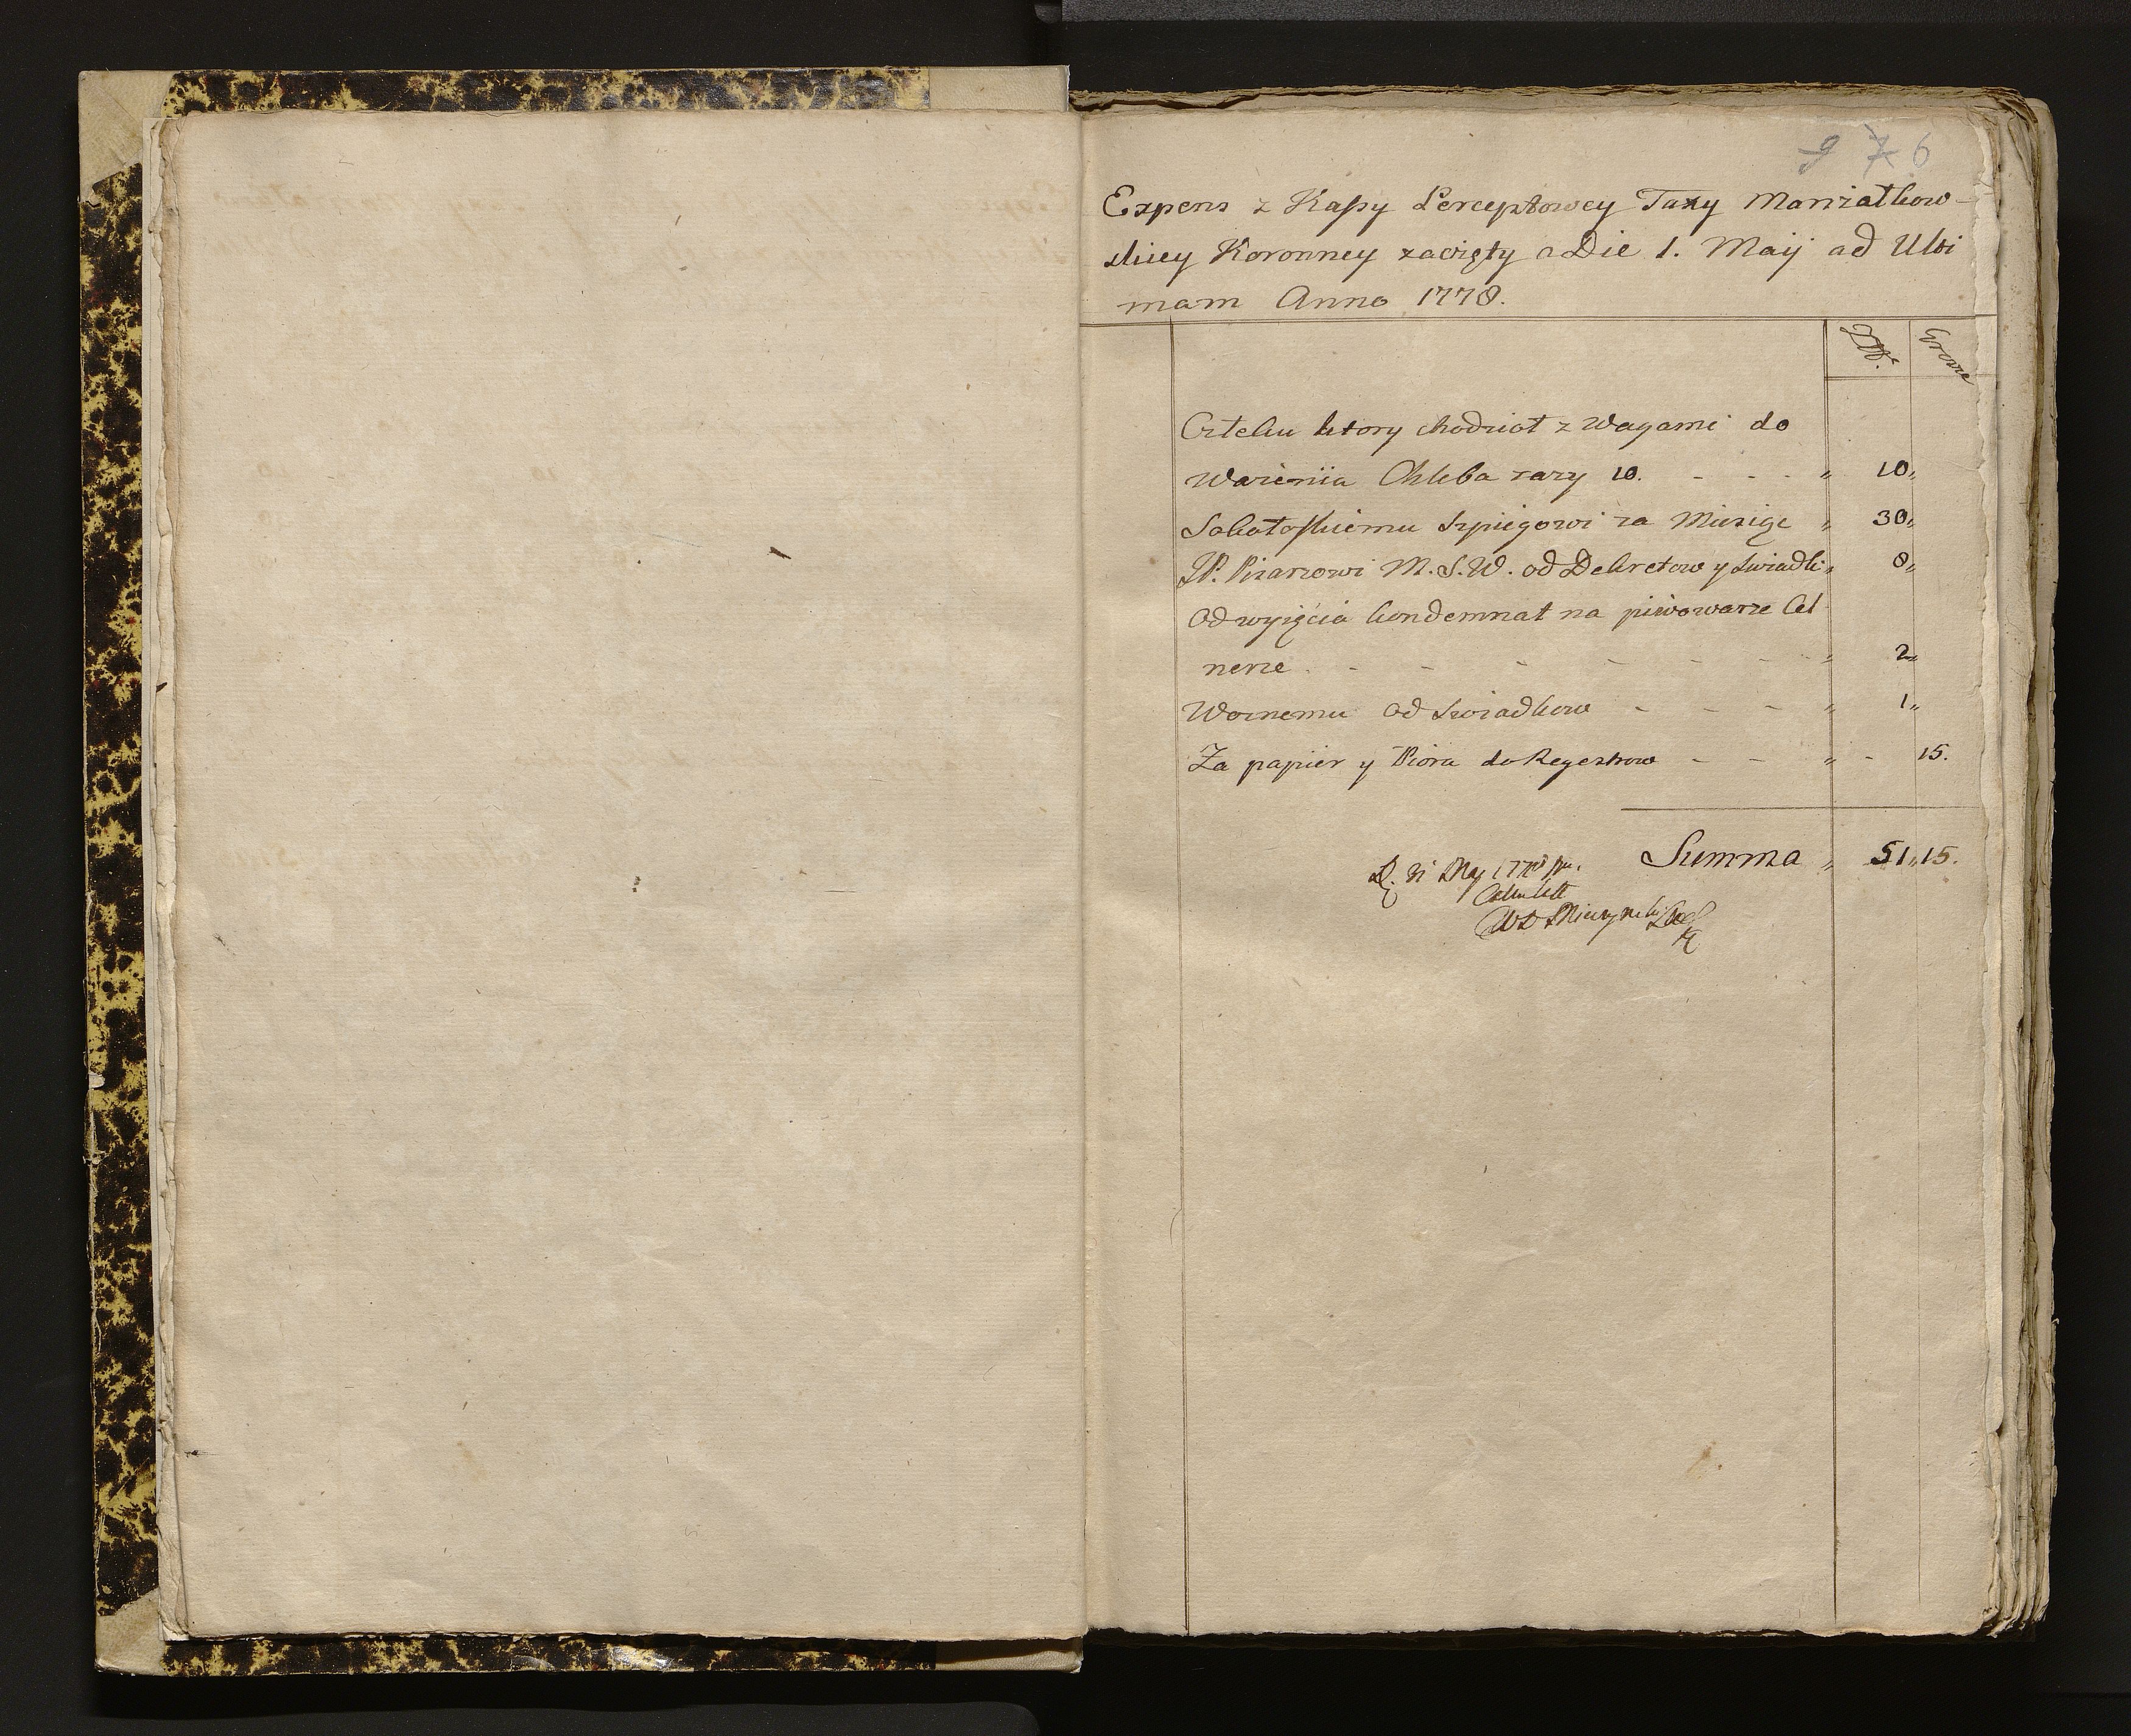 9 7 6
Expens z Kassy Perceptowey Taxy Marszałkow-
skiey Koronney zacięty a Die 1. Maij ad Ulti
mam Anno 1778.
Złł. Grosze
Człeku ktory chodził z Wagami do
Ważeniia Chleba razy 10. - - - " 10"
Sobotoskiemu szpiegowi za Miesiąc " 30"
JP. Pisarzowi M. S. W. od Dekretow y swiadk: " 8"
Od wyięcia kondemnat na piwowarze Cel
nerze. - - - - - - " 2"
Woznemu od swiadkow - - - " 1"
Za papier y Piora do Regestrow - - " - 15.
Summa " 51" 15.
D. 31 May 1778